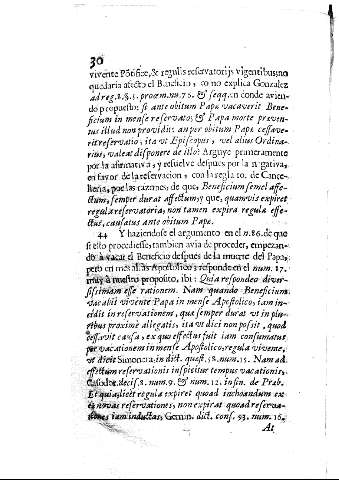 30
vivente Põtifice, & regulis reservatorijs vigentibus, no
quedaria afecto el Beneficio, como explica Gonzalez
ad reg. 8. §. 3. proœm. nu. 76. & seqq. en donde avien-
do propuesto: si ante obitum Papæ vacaverit Bene-
ficium in mense reservato, & Papa morte præven-
tus illud non providit: an per obitum Papæ cessave-
rit reservatio, ita vt Episcopus, vel alius Ordina-
rius, valeat disponere de illo? Arguye primeramente
por la afirmativa, y resuelve despues por la negativa,
en favor de la reservacion, con la regla 10. de Cance-
lleria, por las razones: de que, Beneficium semel affe-
ctum, semper durat affectum; y que, quamvis expiret
regula reservatoria, non tamen expirat regulæ effe-
ctus, causatus ante obitum Papæ.
44 Y haziendose el argumento en el n. 86. de que
si esto procediesse, tambien avia de proceder, empezan-
do à vacar el Beneficio despues de la muerte del Papa,
pero en mes alias Apostolico: responde en el num. 17.
muy à nuestro proposito, ibi: Quia respondeo diver-
sissimam esse rationem. Nam quando Beneficium
vacabit vivente Papa in mense Apostolico, iam in-
cidit in reservationem, quæ semper durat vt in plu-
ribus proximè allegatis, ita vt dici non possit, quod
cessavit causa, ex quo effectus fuit iam consumatus
per vacationem in mense Apostolico, regula vivente,
vt dicit Simoneta, in dict. quæst. 58. num. 15. Nam ad
effectum reservationis inspicitur tempus vacationis.
Casador. decis. 8. num. 9. & num. 12. in fin. de Præb.
Et quia, licèt regula expiret quoad inchoandum ex
es novas reservationes, non expirat quoad reserva-
tiones iam inductas, Gemin. dict. cons. 93. num. 16.
At